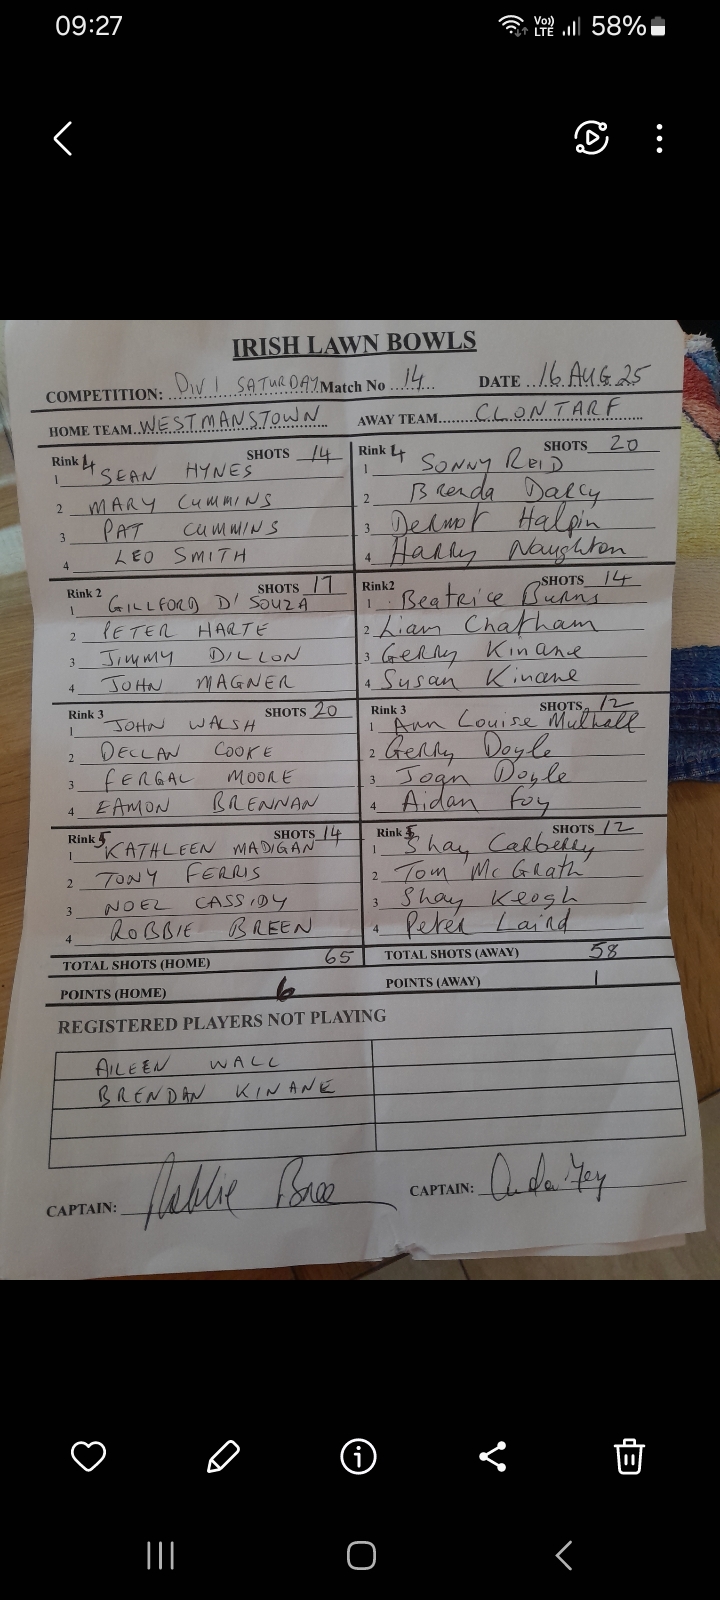 09:27 Vo)) LTE 58%
IRISH LAWN BOWLS
COMPETITION: DIV 1 SATURDAY Match No 14 DATE 16 AUG. 25
HOME TEAM WESTMANSTOWN AWAY TEAM CLONTARF
Rink 4 SHOTS 14 Rink 4 SHOTS 20
1 SEAN HYNES 1 SONNY REID
2 MARY CUMMINS 2 Brenda Darcy
3 PAT CUMMINS 3 Dermot Halpin
4 LEO SMITH 4 Harry Naughton
Rink 2 SHOTS 17 Rink2 SHOTS 14
1 GILLFORD D'SOUZA 1 Beatrice Burns
2 PETER HARTE 2 Liam Chatham
3 JIMMY DILLON 3 Gerry Kinane
4 JOHN MAGNER 4 Susan Kinane
Rink 3 SHOTS 20 Rink 3 SHOTS 12
1 JOHN WALSH 1 Ann Louise Mulhall
2 DECLAN COOKE 2 Gerry Doyle
3 FERGAL MOORE 3 Joan Doyle
4 EAMON BRENNAN 4 Aidan Foy
Rink 5 SHOTS 14 Rink 5 SHOTS 12
1 KATHLEEN MADIGAN 1 Shay Carberry
2 TONY FERRIS 2 Tom McGrath
3 NOEL CASSIDY 3 Shay Keogh
4 ROBBIE BREEN 4 Peter Laird
TOTAL SHOTS (HOME) 65 TOTAL SHOTS (AWAY) 58
POINTS (HOME) 6 POINTS (AWAY) 1
REGISTERED PLAYERS NOT PLAYING
AILEEN WALL
BRENDAN KINANE
CAPTAIN: CAPTAIN: